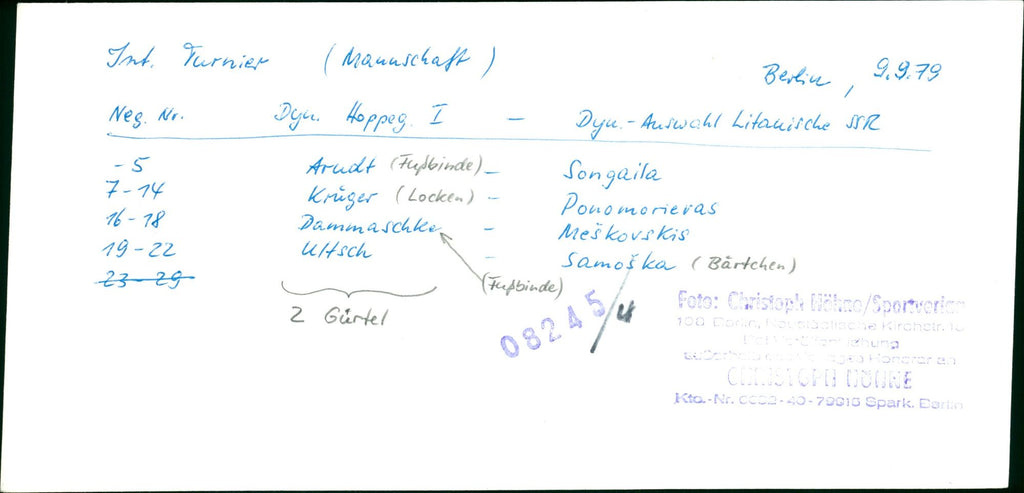 Int. Turnier (Mannschaft)
Berlin, 9.9.79
Neg. Nr. Dyn. Hoppeg. I - Dyn.-Auswahl Litauische SSR
- 5 Arndt (Fußbinde) - Songaila
7-14 Krüger (Locken) - Ponomorievas
16-18 Dammaschke - Meškovskis
19-22 Ultsch - Samoška (Bärtchen)
23-29
(Fußbinde)
2 Gürtel
08245/4
Foto: Christoph Höhne/Sportverlag
108 Berlin, Neustädtische Kirchstr. 15
Bei Veröffentlichung
außerhalb des Verlages Honorar an
CHRISTOPH HÖHNE
Kto.-Nr. Spark. Berlin